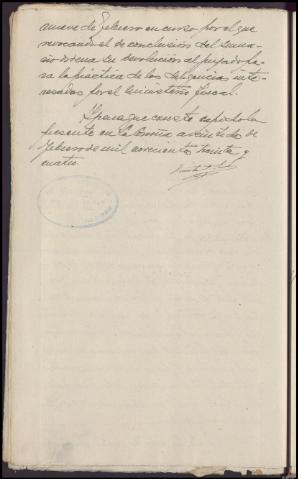 nueve de febrero en curso por el que
revocando el de conclusión del suma-
rio ordena su devolución al Juzgado pa-
ra la práctica de las diligencias inte-
resadas por el Ministerio fiscal.
Y para que conste expido la
presente en La Coruña a veintidos de
febrero de mil novecientos treinta y
cuatro.